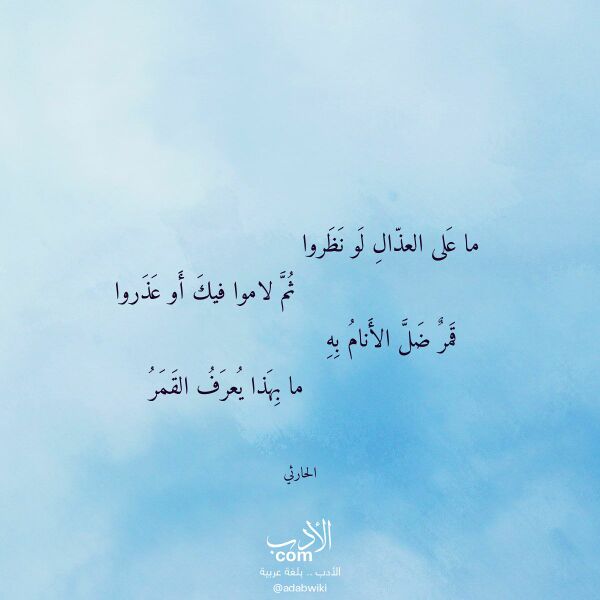 ما عَلى العذّالِ لَو نَظَروا
ثُمَّ لاموا فيكَ أَو عَذَروا
قَمرٌ ضَلَّ الأَنامُ بِهِ
ما بِهَذا يُعرَفُ القَمَرُ
الحارثي
الأدب
com
الأدب .. بلغة عربية
@adabwiki